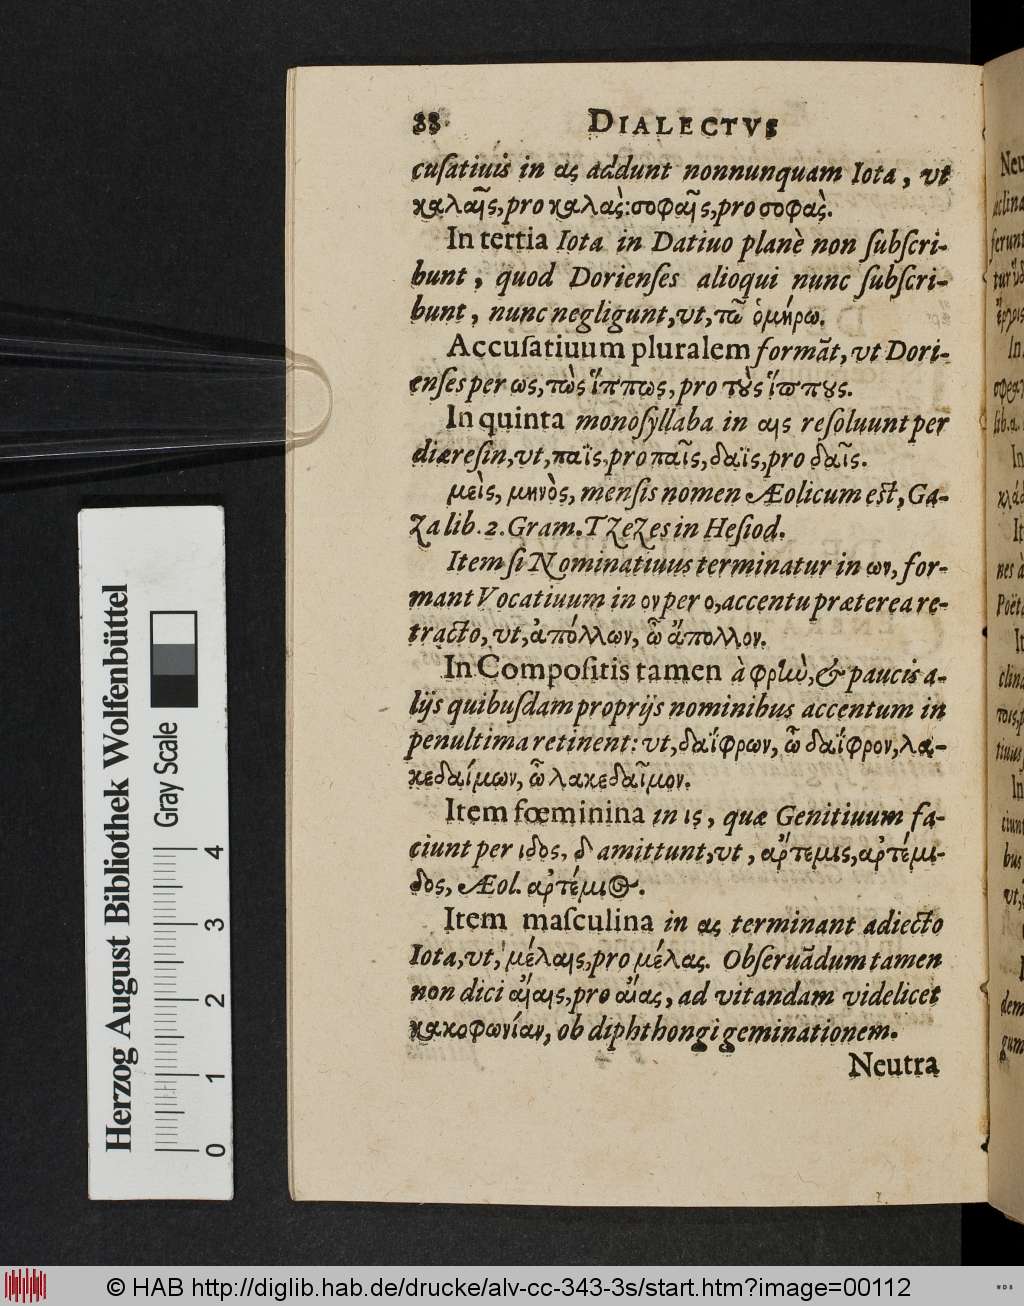 88 DIALECTVS
cuſatiuis in ας addunt nonnunquam Iota, vt
καλαῖς, pro καλὰς: σοφαῖς, pro σοφὰς.
In tertia Iota in Datiuo planè non ſubſcri-
bunt, quod Dorienſes alioqui nunc ſubſcri-
bunt, nunc negligunt, vt, τῶ ὁμήρω.
Accuſatiuum pluralem formāt, vt Dori-
enſes per ως, τὼς ἵππως, pro τοὺς ἵππους.
In quinta monoſyllaba in αις reſoluunt per
diæreſin, vt, παῒς, pro παῖς, δαῒς, pro δαῖς.
μεὶς, μηνὸς, menſis nomen Æolicum eſt, Ga-
za lib. 2. Gram. Tzezes in Heſiod.
Item ſi Nominatiuus terminatur in ων, for-
mant Vocatiuum in ον per ο, accentu præterea re-
tracto, vt, ἀπόλλων, ὦ ἄπολλον.
In Compoſitis tamen à φρὴν, & paucis a-
lijs quibuſdam proprijs nominibus accentum in
penultima retinent: vt, δαΐφρων, ὦ δαΐφρον, λα-
κεδαίμων, ὦ λακεδαῖμον.
Item fœminina in ις, quæ Genitiuum fa-
ciunt per ιδος, δ amittunt, vt, αρ́τεμις, αρτέμι-
δος, Æol. αρτέμιος.
Item maſculina in ας terminant adiecto
Iota, vt, μέλαις, pro μέλας. Obſeruādum tamen
non dici αἴαις, pro αἴας, ad vitandam videlicet
κακοφωνίαν, ob diphthongi geminationem.
Neutra
Herzog August Bibliothek Wolfenbüttel
Gray Scale
0 1 2 3 4
© HAB http://diglib.hab.de/drucke/alv-cc-343-3s/start.htm?image=00112